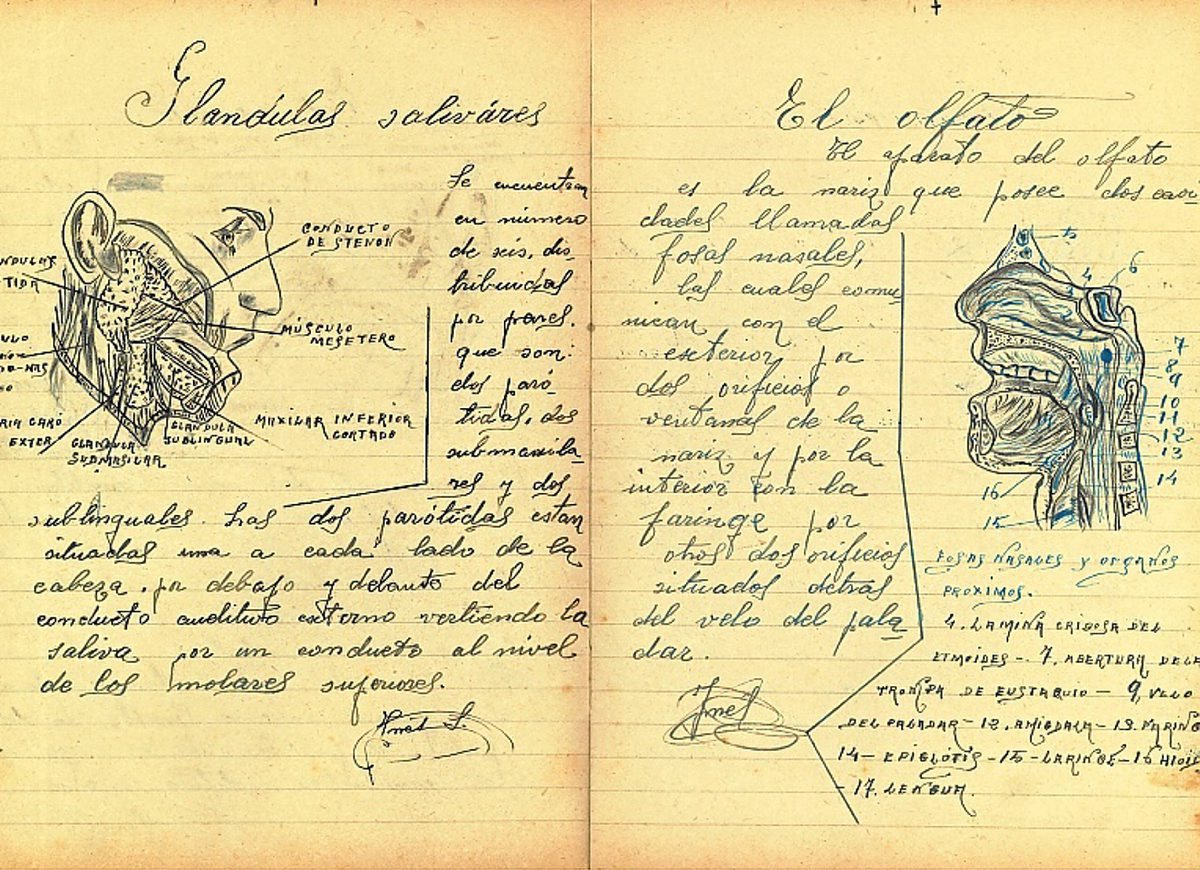 Glandulas saliváres
Se encuentran
en número
de seis, dis
tribuidas
por pares.
que son:
dos paró
tidas, dos
submaxila
res y dos
sublinguales. Las dos parótidas estan
situadas una a cada lado de la
cabeza. por debajo y delante del
conducto auditivo externo vertiendo la
saliva por un conducto al nivel
de los molares superiores.
Inés S.
CONDUCTO
DE STENON
MÚSCULO
MESETERO
MAXILAR INFERIOR
CORTADO
GLANDULA
SUBLINGUAL
GLANDULA
SUBMASILAR
NDULAS
TIDA
EXTER
El olfato
El aparato del olfato
es la nariz que posee dos cavi
dades llamadas
fosas nasales,
las cuales comu
nican con el
exterior por
dos orificios o
ventanas de la
nariz y por la
interior con la
faringe por
otros dos orificios
situados detras
del velo del pala
dar.
Inés
5
4
6
7
8
9
10
11
12
13
14
16
15
FOSAS NASALES Y ORGANOS
PROXIMOS.
4. LAMINA CRIBOSA DEL
ETMOIDES-. 7. ABERTURA DE LA
TROMPA DE EUSTAQUIO - 9, VELO
DEL PALADAR - 12. AMIGDALA - 13. FARING
14 - EPIGLOTIS - 15 - LARINGE - 16 HIOI
- 17. LENGUA.